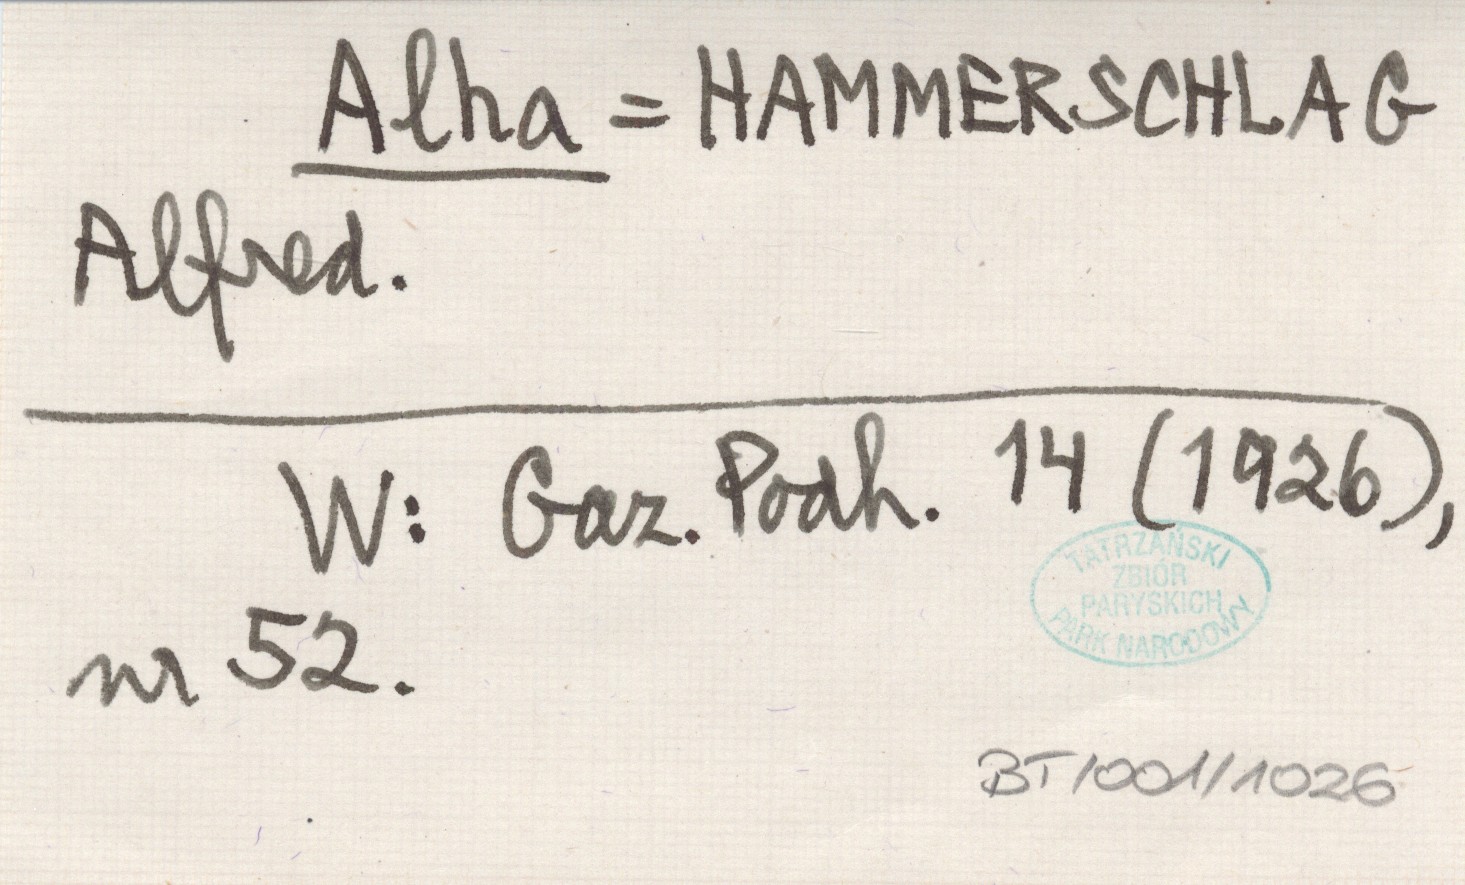 Alha = HAMMERSCHLAG
Alfred.
W: Gaz. Podh. 14 (1926),
nr 52.
TATRZAŃSKI
ZBIÓR
PARYSKICH
PARK NARODOWY
BT/001/1026